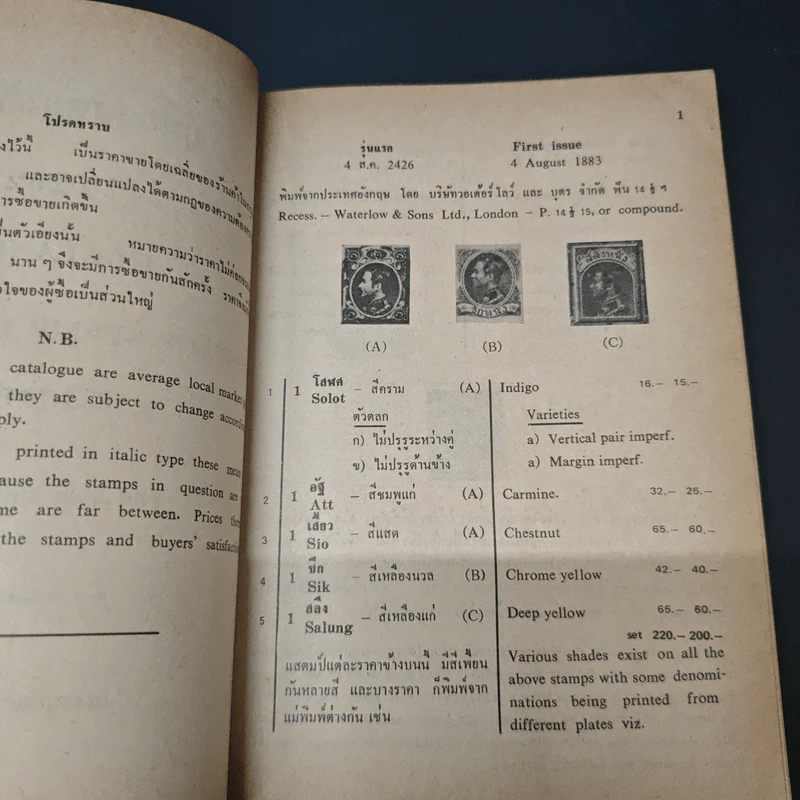 โปรดทราบ
เป็นราคาขายโดยเฉลี่ยของร้านค้า
และอาจเปลี่ยนแปลงได้ตามกฎของความต้อง
การซื้อขายเกิดขึ้น
เป็นตัวเอียงนั้น หมายความว่าราคาไม่ค่อย
นาน ๆ จึงจะมีการซื้อขายกันสักครั้ง
ใจของผู้ซื้อเป็นส่วนใหญ่
N.B.
catalogue are average local market
they are subject to change
ply.
printed in italic type these
ause the stamps in question are
me are far between. Prices
the stamps and buyers'
1
รุ่นแรก First issue
4 ส.ค. 2426 4 August 1883
พิมพ์จากประเทศอังกฤษ โดย บริษัทวอเต้อร์โลว์ และ บุตร จำกัด ฟัน 14 ½ ฯ
Recess. – Waterlow & Sons Ltd., London – P. 14 ½ 15, or compound.
(A) (B) (C)
1 1 โสฬส Solot – สีคราม (A) Indigo 16.– 15.–
ตัวตลก Varieties
ก) ไม่ปรุรูระหว่างคู่ a) Vertical pair imperf.
ข) ไม่ปรุรูด้านข้าง a) Margin imperf.
2 1 อัฐ Att – สีชมพูแก่ (A) Carmine. 32.– 25.–
3 1 เสี้ยว Sio – สีแสด (A) Chestnut 65.– 60.–
4 1 ซีก Sik – สีเหลืองนวล (B) Chrome yellow 42.– 40.–
5 1 สลึง Salung – สีเหลืองแก่ (C) Deep yellow 65.– 60.–
set 220.– 200.–
แสตมป์แต่ละราคาข้างบนนี้ มีสีเพี้ยน
กันหลายสี และบางราคา ก็พิมพ์จาก
แม่พิมพ์ต่างกัน เช่น
Various shades exist on all the
above stamps with some denomi-
nations being printed from
different plates viz.